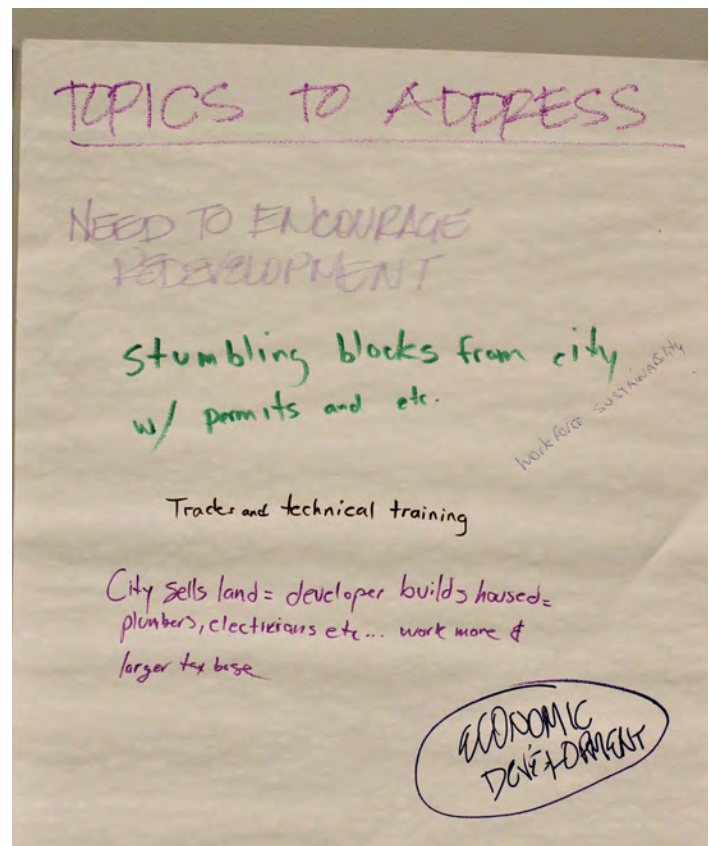 TOPICS TO ADDRESS
NEED TO ENCOURAGE
REDEVELOPMENT
Stumbling blocks from city
w/ permits and etc.
WORKFORCE SUSTAINABILITY
Trades and technical training
City sells land = developer builds housed =
plumbers, electricians etc... work more &
larger tax base
ECONOMIC
DEVELOPMENT